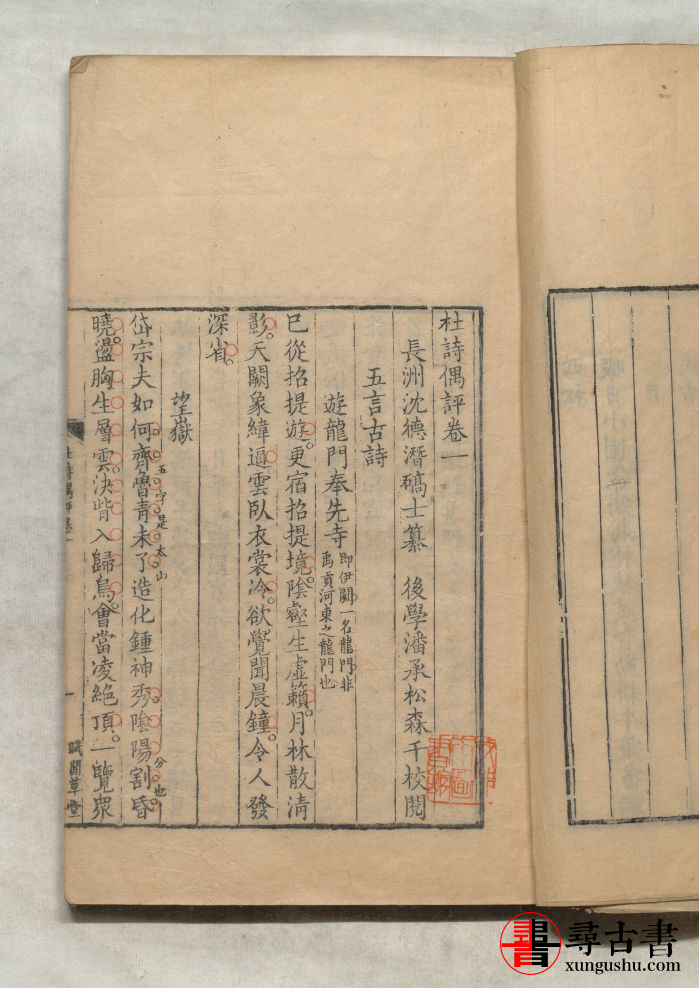 杜詩偶評卷一
長洲沈德潛碻士纂　後學潘承松森千校閱
五言古詩
遊龍門奉先寺
即伊闕一名龍門非
禹貢河東之龍門也
已從招提遊更宿招提境陰壑生虛籟月林散清
影天闕象緯逼雲臥衣裳冷欲覺聞晨鐘令人發
深省
望嶽
五字是太山
分也
岱宗夫如何齊魯青未了造化鍾神秀陰陽割昏
曉盪胸生層雲決眥入歸鳥會當凌絕頂一覽眾
杜詩偶評卷一
一
賦閒草堂
尋古書
xungushu.com